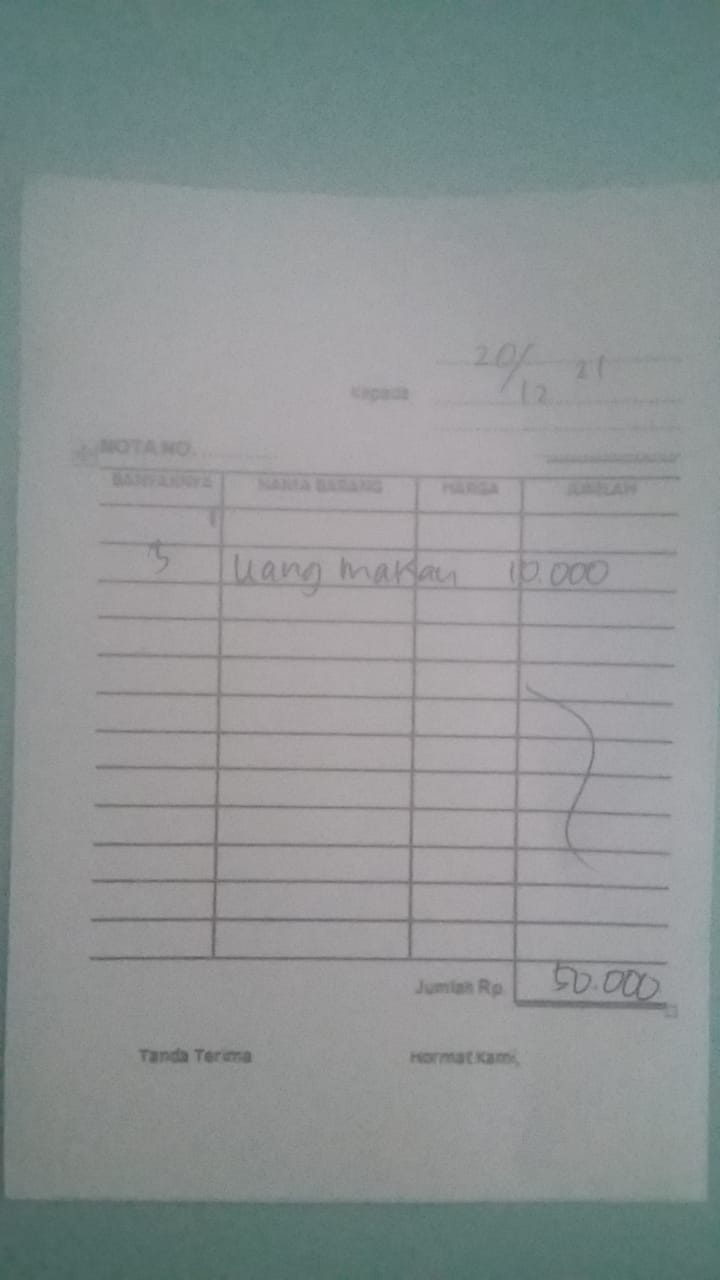 20/12 21
Kepada
NOTA NO.
BANYAKNYA NAMA BARANG HARGA JUMLAH
5 Uang makan 10.000
Jumlah Rp 50.000
Tanda Terima Hormat Kami,